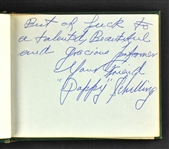 Best of luck to
a talented, Beautiful
and gracious performer
Your friend
"Pappy" Schilling